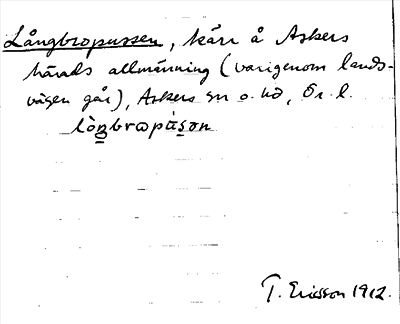 Långbropussen, kärr å Askers
härads allmänning (varigenom lands-
vägen går), Askers sn o. hd, Ör. l.
T. Ericsson 1912.